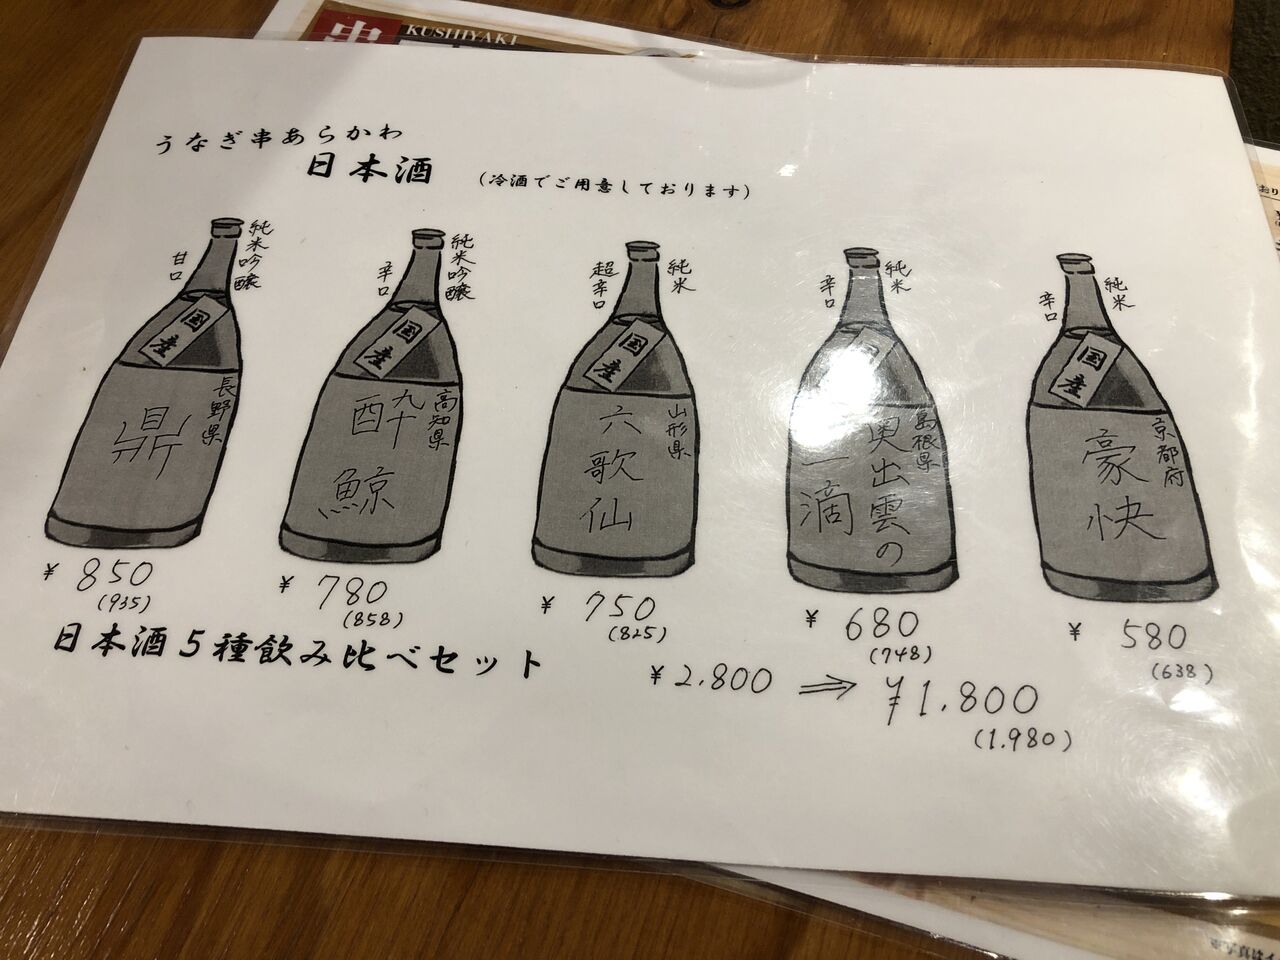 串
KUSHIYAKI
うなぎ串あらかわ
日本酒 （冷酒でご用意しております）
純米吟醸
甘口
国産
長野県
鼎
¥850
(935)
純米吟醸
辛口
国産
高知県
酔鯨
¥780
(858)
純米
超辛口
国産
山形県
六歌仙
¥750
(825)
純米
辛口
国
島根県
奥出雲の
一滴
¥680
(748)
純米
辛口
国産
京都府
豪快
¥580
(638)
日本酒5種飲み比べセット ¥2.800 ⇒ ¥1.800
(1.980)